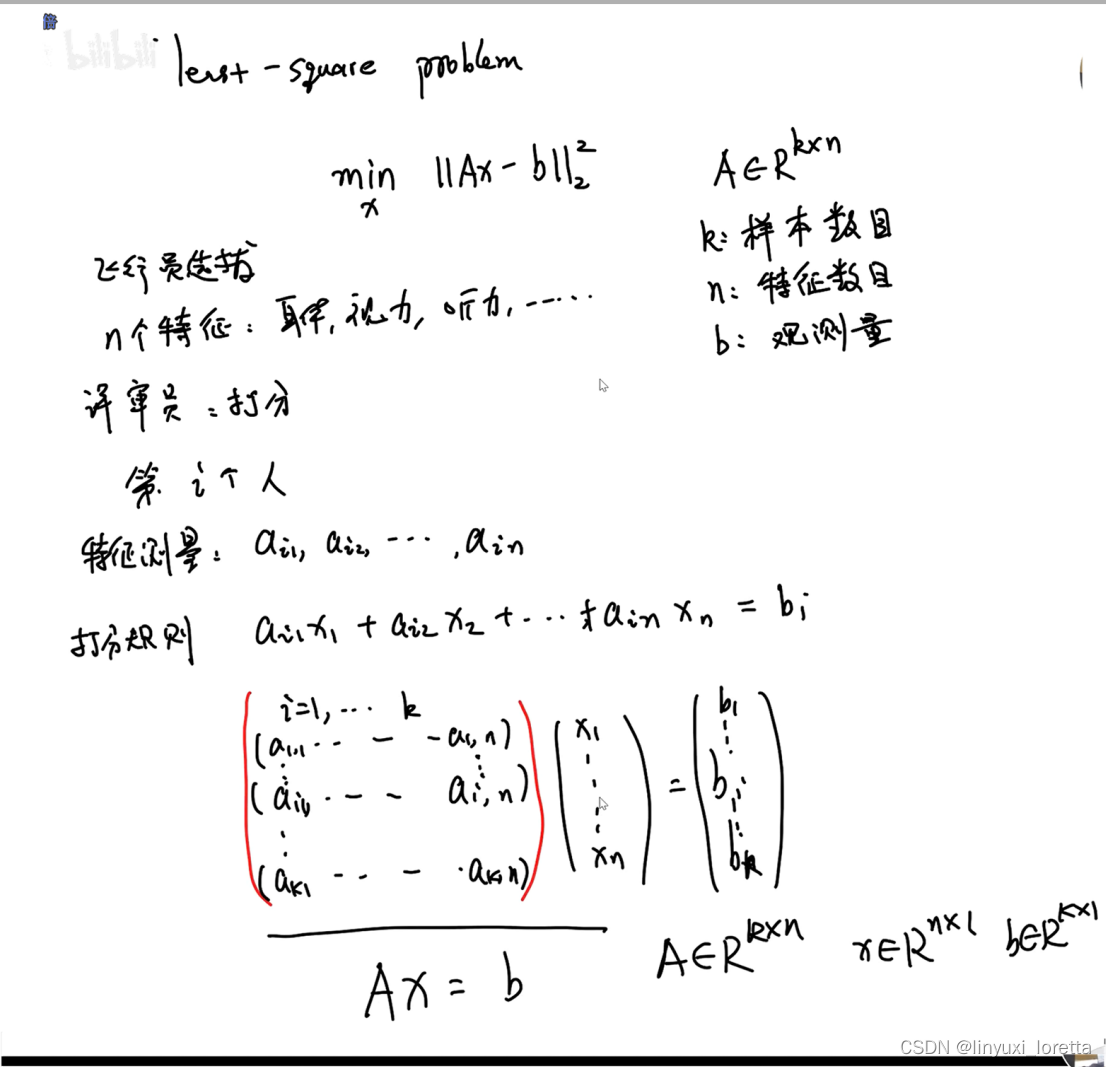 bilibili
least-square problem
min ||Ax-b||₂²
x
A∈R^{k×n}
k: 样本数目
n: 特征数目
b: 观测量
飞行员选拔
n个特征: 身体, 视力, 听力, ·····
评审员: 打分
第 i 个人
特征测量: a_{i1}, a_{i2}, ···, a_{in}
打分规则 a_{i1}x_1 + a_{i2}x_2 + ··· + a_{in}x_n = b_i
i=1, ··· k
(a_{1,1} ·· - - a_{1,n}) x_1 b_1
(a_{i,1} · - - a_{i,n}) = b_i
(a_{k1} ·· - · a_{k,n}) x_n b_k
Ax = b A∈R^{k×n} x∈R^{n×1} b∈R^{k×1}
CSDN @linyuxi_loretta